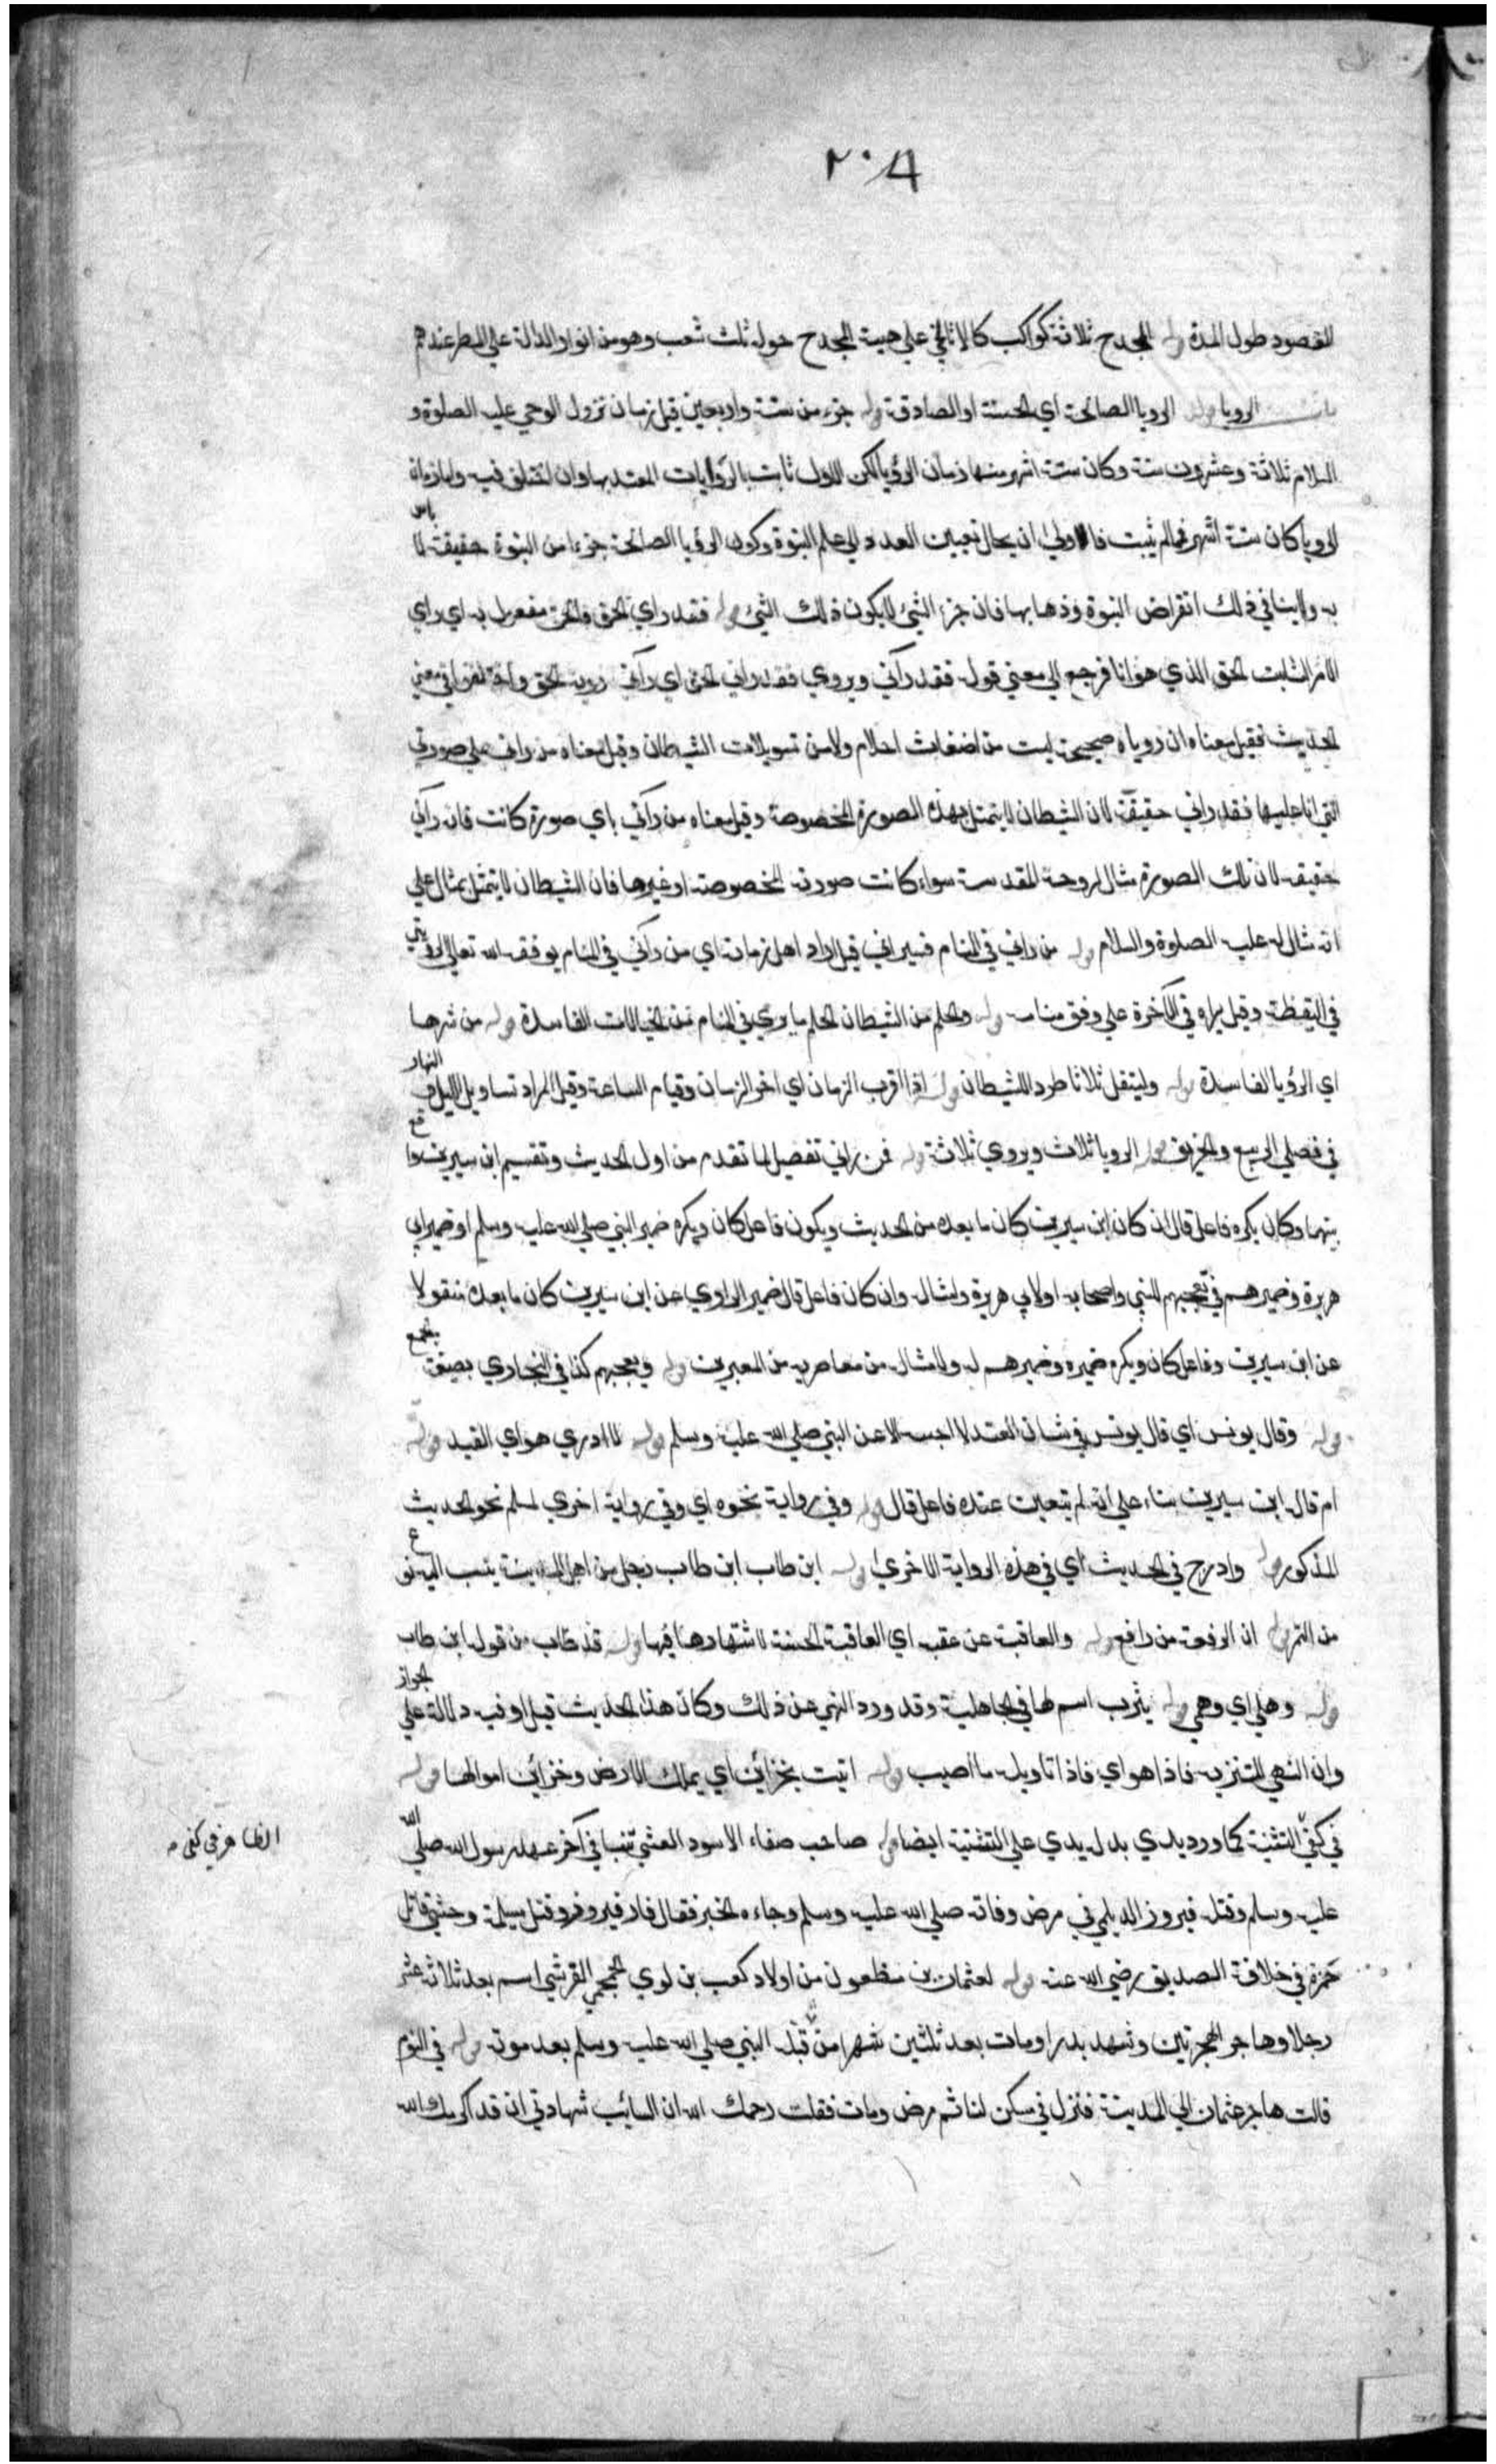 ٢٠٨
المقصود طول المدة قوله المجدح ثلاثة كواكب كالاثافي على هيئة المجدح حوله ثلث شعب وهو من انواء الدالة على المطر عندهم
باب الرويا قوله الرويا الصالحة اي الحسنة او الصادقة قوله جزء من ستة واربعين قيل زمان نزول الوحي عليه الصلوة و
السلام ثلاثة وعشرون سنة وكان ستة اشهر منها زمان الرؤيا لكن الاول ثابت بالروايات المعتد بها وان اختلف فيه واما زمان
الرويا كان ستة اشهر فما لم يثبت فالاولى ان يحال تعيين العدد الى علم النبوة وكون الرؤيا الصالحة جزءا من النبوة حقيقة لا باس
به ولا ينافي ذلك انقراض النبوة وذهابها فان جزء الشيئ لا يكون ذلك الشيئ قوله فقد راي الحق فالحق مفعول به اي راي
الامر الثابت الحق الذي هو انا فرجع الى معنى قوله فقد رآني ويروي فقد راني الحق اي رآني روية الحق واختلفوا في معنى
الحديث فقيل معناه ان روياه صحيحة ليست من اضغاث احلام ولا من تسويلات الشيطان وقيل معناه من راني على صورتي
التي انا عليها فقد راني حقيقة لان الشيطان لا يتمثل بهذه الصورة المخصوصة وقيل معناه من رآني باي صورة كانت فانه رآني
حقيقة لان تلك الصورة مثال لروحه المقدسة سواء كانت صورته المخصوصة او غيرها فان الشيطان لا يتمثل بمثال على
انه مثال له عليه الصلوة والسلام قوله من راني في المنام فسيراني قيل اراد اهل زمانه اي من رآني في المنام يوفقه الله تعالى لرؤيتي
في اليقظة وقيل يراه في الآخرة على وفق منامه قوله والحلم من الشيطان الحلم ما يرى في المنام من الخيالات الفاسدة قوله من شرها
اي الرؤيا الفاسدة قوله وليتفل ثلاثا طردا للشيطان قوله اذا اقرب الزمان اي اخر الزمان وقيام الساعة وقيل المراد تساوي الليل والنهار
في فصلي الربيع والخريف قوله الرويا ثلاث ويروي ثلاثة قوله فمن راي تفصيل لما تقدم من اول الحديث وتقسيم ابن سيرين واقع
بينهما وكان يكره فاعل قال ان كان ابن سيرين كان ما بعده من الحديث ويكون فاعل كان ويكره ضمير النبي صلى الله عليه وسلم او ضمير ابي
هريرة وضميرهم في يعجبهم للنبي واصحابه او لابي هريرة وامثاله وان كان فاعل قال ضمير الراوي عن ابن سيرين كان ما بعده منقولا
عن ابن سيرين وفاعل كان ويكره ضميره وضميرهم له ولامثاله من معاصريه من المعبرين قوله ويعجبهم كذا في البخاري بصيغة الجمع
قوله وقال يونس اي قال يونس في شان القيد لا احسبه الا عن النبي صلى الله عليه وسلم قوله لا ادري هو اي القيد قوله
ام قاله ابن سيرين بناء على انه لم يتعين عنده فاعل قال قوله وفي رواية نحوه اي وفي رواية اخرى لمسلم نحو الحديث
المذكور قوله وادرج في الحديث اي في هذه الرواية الاخرى قوله ابن طاب ابن طاب رجل من اهل المدينة ينسب اليه نوع
من التمر قوله ان الرفعة من رافع قوله والعاقبة عن عقبة اي العاقبة الحسنة لاشتهارها فيها قوله قد طاب من قوله ابن طاب
قوله وهلي اي وهمي قوله يثرب اسم لها في الجاهلية وقد ورد النهي عن ذلك وكان هذا الحديث قبله او فيه دلالة على الجواز
وان النهي للتنزيه فاذا هو اي فاذا تاويله ما اصيب قوله اتيت بخزائن اي يملك الارض وخزائن اموالها قوله
في كفيّ التثنية كما ورد يدي بدل يدي على التثنية ايضا قوله صاحب صنعاء الاسود العنسي تنبا في آخر عهد رسول الله صلى الله
عليه وسلم وقتله فيروز الديلمي في مرض وفاته صلى الله عليه وسلم وجاءه الخبر فقال فاز فيروز وقتل مسيلمة وحشي قاتل
حمزة في خلافة الصديق رضي الله عنه قوله لعثمان بن مظعون من اولاد كعب بن لوي الجمحي القرشي اسلم بعد ثلاثة عشر
رجلا وهاجر الهجرتين وشهد بدرا ومات بعد ثلثين شهرا من قبّله النبي صلى الله عليه وسلم بعد موته قوله في النوم
قالت هاجر عثمان الى المدينة فنزل في مسكن لنا ثم مرض ومات فقلت رحمك الله ابا السائب شهادتي ان قد اكرمك الله
الظاهر في كفى م